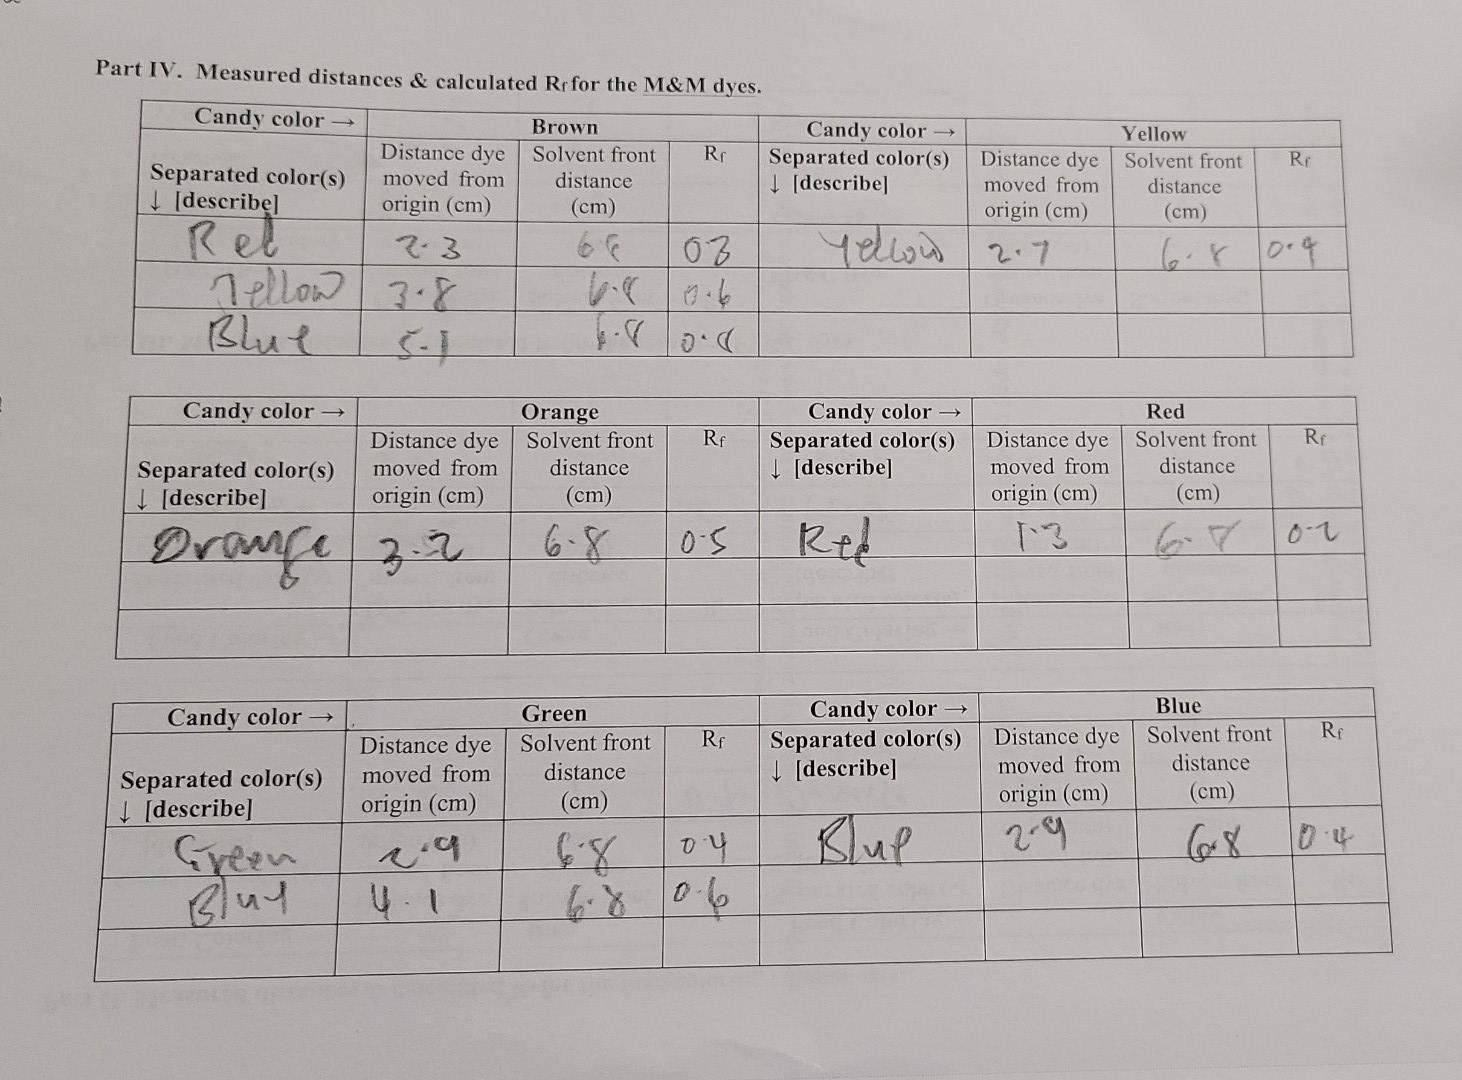 Part IV. Measured distances & calculated Rf for the M&M dyes.
Candy color → Brown Candy color → Yellow
Separated color(s) ↓ [describe] Distance dye moved from origin (cm) Solvent front distance (cm) Rf Separated color(s) ↓ [describe] Distance dye moved from origin (cm) Solvent front distance (cm) Rf
Red 2.3 03 Yellow 2.7 6.8 0.4
Yellow 3.8 6.8 0.6
Blue 5.1 6.8 0.8
Candy color → Orange Candy color → Red
Separated color(s) ↓ [describe] Distance dye moved from origin (cm) Solvent front distance (cm) Rf Separated color(s) ↓ [describe] Distance dye moved from origin (cm) Solvent front distance (cm) Rf
Orange 3.2 6.8 0.5 Red 1.3 6.8 0.2
Candy color → Green Candy color → Blue
Separated color(s) ↓ [describe] Distance dye moved from origin (cm) Solvent front distance (cm) Rf Separated color(s) ↓ [describe] Distance dye moved from origin (cm) Solvent front distance (cm) Rf
Green 2.9 6.8 0.4 Blue 2.9 6.8 0.4
Blue 4.1 6.8 0.6